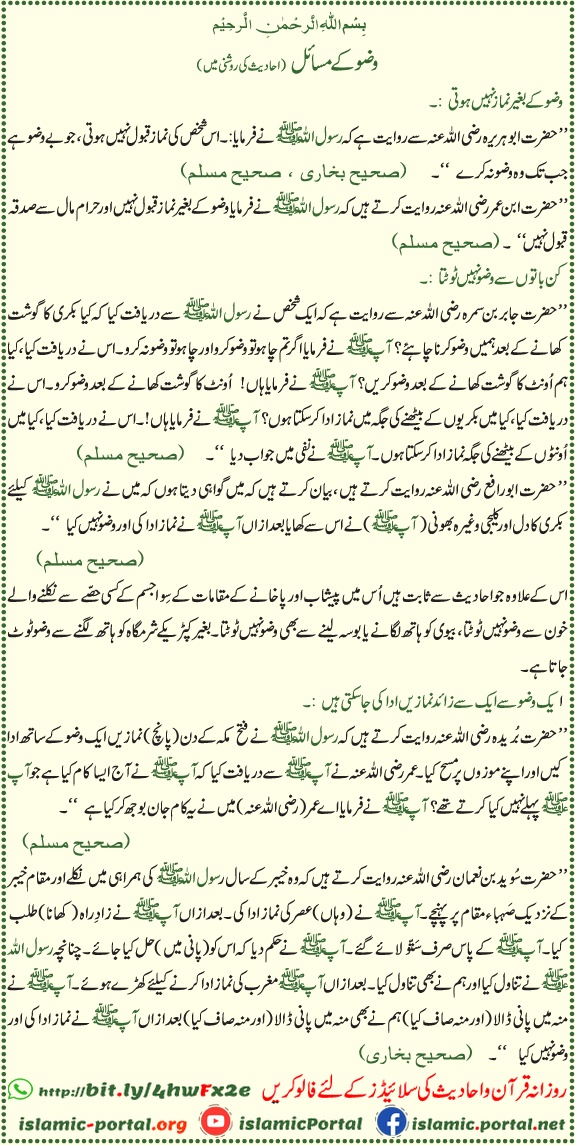 بِسْمِ اللهِ الرَّحْمٰنِ الرَّحِيْمِ
وضو کے مسائل (احادیث کی روشنی میں)
وضو کے بغیر نماز نہیں ہوتی :۔
’’حضرت ابو ہریرہ رضی اللہ عنہ سے روایت ہے کہ رسول اللہ ﷺ نے فرمایا:۔ اس شخص کی نماز قبول نہیں ہوتی، جو بے وضو ہے
جب تک وہ وضو نہ کرے ‘‘۔ (صحیح بخاری ، صحیح مسلم)
’’حضرت ابن عمر رضی اللہ عنہ روایت کرتے ہیں کہ رسول اللہ ﷺ نے فرمایا وضو کے بغیر نماز قبول نہیں اور حرام مال سے صدقہ
قبول نہیں‘‘ ۔ (صحیح مسلم)
کن باتوں سے وضو نہیں ٹوٹتا :۔
’’حضرت جابر بن سمرہ رضی اللہ عنہ سے روایت ہے کہ ایک شخص نے رسول اللہ ﷺ سے دریافت کیا کہ کیا بکری کا گوشت
کھانے کے بعد ہمیں وضو کرنا چاہئے؟ آپ ﷺ نے فرمایا اگر تم چاہو تو وضو کرو اور چاہو تو وضو نہ کرو۔ اس نے دریافت کیا، کیا
ہم اُونٹ کا گوشت کھانے کے بعد وضو کریں؟ آپ ﷺ نے فرمایا ہاں! اُونٹ کا گوشت کھانے کے بعد وضو کرو۔ اس نے
دریافت کیا، کیا میں بکریوں کے بیٹھنے کی جگہ میں نماز ادا کر سکتا ہوں؟ آپ ﷺ نے فرمایا ہاں!۔ اس نے دریافت کیا، کیا میں
اُونٹوں کے بیٹھنے کی جگہ نماز ادا کر سکتا ہوں۔ آپ ﷺ نے نفی میں جواب دیا ‘‘۔ (صحیح مسلم)
’’حضرت ابو رافع رضی اللہ عنہ روایت کرتے ہیں، بیان کرتے ہیں کہ میں گواہی دیتا ہوں کہ میں نے رسول اللہ ﷺ کیلئے
بکری کا دل اور کلیجی وغیرہ بھونی (آپ ﷺ) نے اس سے کھایا بعد ازاں آپ ﷺ نے نماز ادا کی اور وضو نہیں کیا ‘‘۔
(صحیح مسلم)
اس کے علاوہ جو احادیث سے ثابت ہیں اُس میں پیشاب اور پاخانے کے مقامات کے سِوا جسم کے کسی حصّے سے نکلنے والے
خون سے وضو نہیں ٹوٹتا، بیوی کو ہاتھ لگانے یا بوسہ لینے سے بھی وضو نہیں ٹوٹتا۔ بغیر کپڑے کے شرمگاہ کو ہاتھ لگنے سے وضو ٹوٹ
جاتا ہے۔
ایک وضو سے ایک سے زائد نمازیں ادا کی جاسکتی ہیں :۔
’’حضرت بُریدہ رضی اللہ عنہ روایت کرتے ہیں کہ رسول اللہ ﷺ نے فتح مکہ کے دن (پانچ) نمازیں ایک وضو کے ساتھ ادا
کیں اور اپنے موزوں پر مسح کیا۔ عمر رضی اللہ عنہ نے آپ ﷺ سے دریافت کیا کہ آپ ﷺ نے آج ایسا کام کیا ہے جو آپ
ﷺ پہلے نہیں کیا کرتے تھے؟ آپ ﷺ نے فرمایا اے عمر (رضی اللہ عنہ) میں نے یہ کام جان بوجھ کر کیا ہے ‘‘۔
(صحیح مسلم)
’’حضرت سُوید بن نعمان رضی اللہ عنہ روایت کرتے ہیں کہ وہ خیبر کے سال رسول اللہ ﷺ کی ہمراہی میں نکلے اور مقام خیبر
کے نزدیک صَہباء مقام پر پہنچے۔ آپ ﷺ نے (وہاں) عصر کی نماز ادا کی۔ بعد ازاں آپ ﷺ نے زادِ راہ (کھانا) طلب
کیا۔ آپ ﷺ کے پاس صرف ستّو لائے گئے۔ آپ ﷺ نے حکم دیا کہ اس کو (پانی میں) حل کیا جائے۔ چنانچہ رسول اللہ
ﷺ نے تناول کیا اور ہم نے بھی تناول کیا۔ بعد ازاں آپ ﷺ مغرب کی نماز ادا کرنے کیلئے کھڑے ہوئے۔ آپ ﷺ نے
منہ میں پانی ڈالا (اور منہ صاف کیا) ہم نے بھی منہ میں پانی ڈالا (اور منہ صاف کیا) بعد ازاں آپ ﷺ نے نماز ادا کی اور
وضو نہیں کیا ‘‘۔ (صحیح بخاری)
روزانہ قرآن و احادیث کی سلائیڈز کے لئے فالو کریں http://bit.ly/4hwFx2e
islamic-portal.org islamicPortal islamic-portal.net